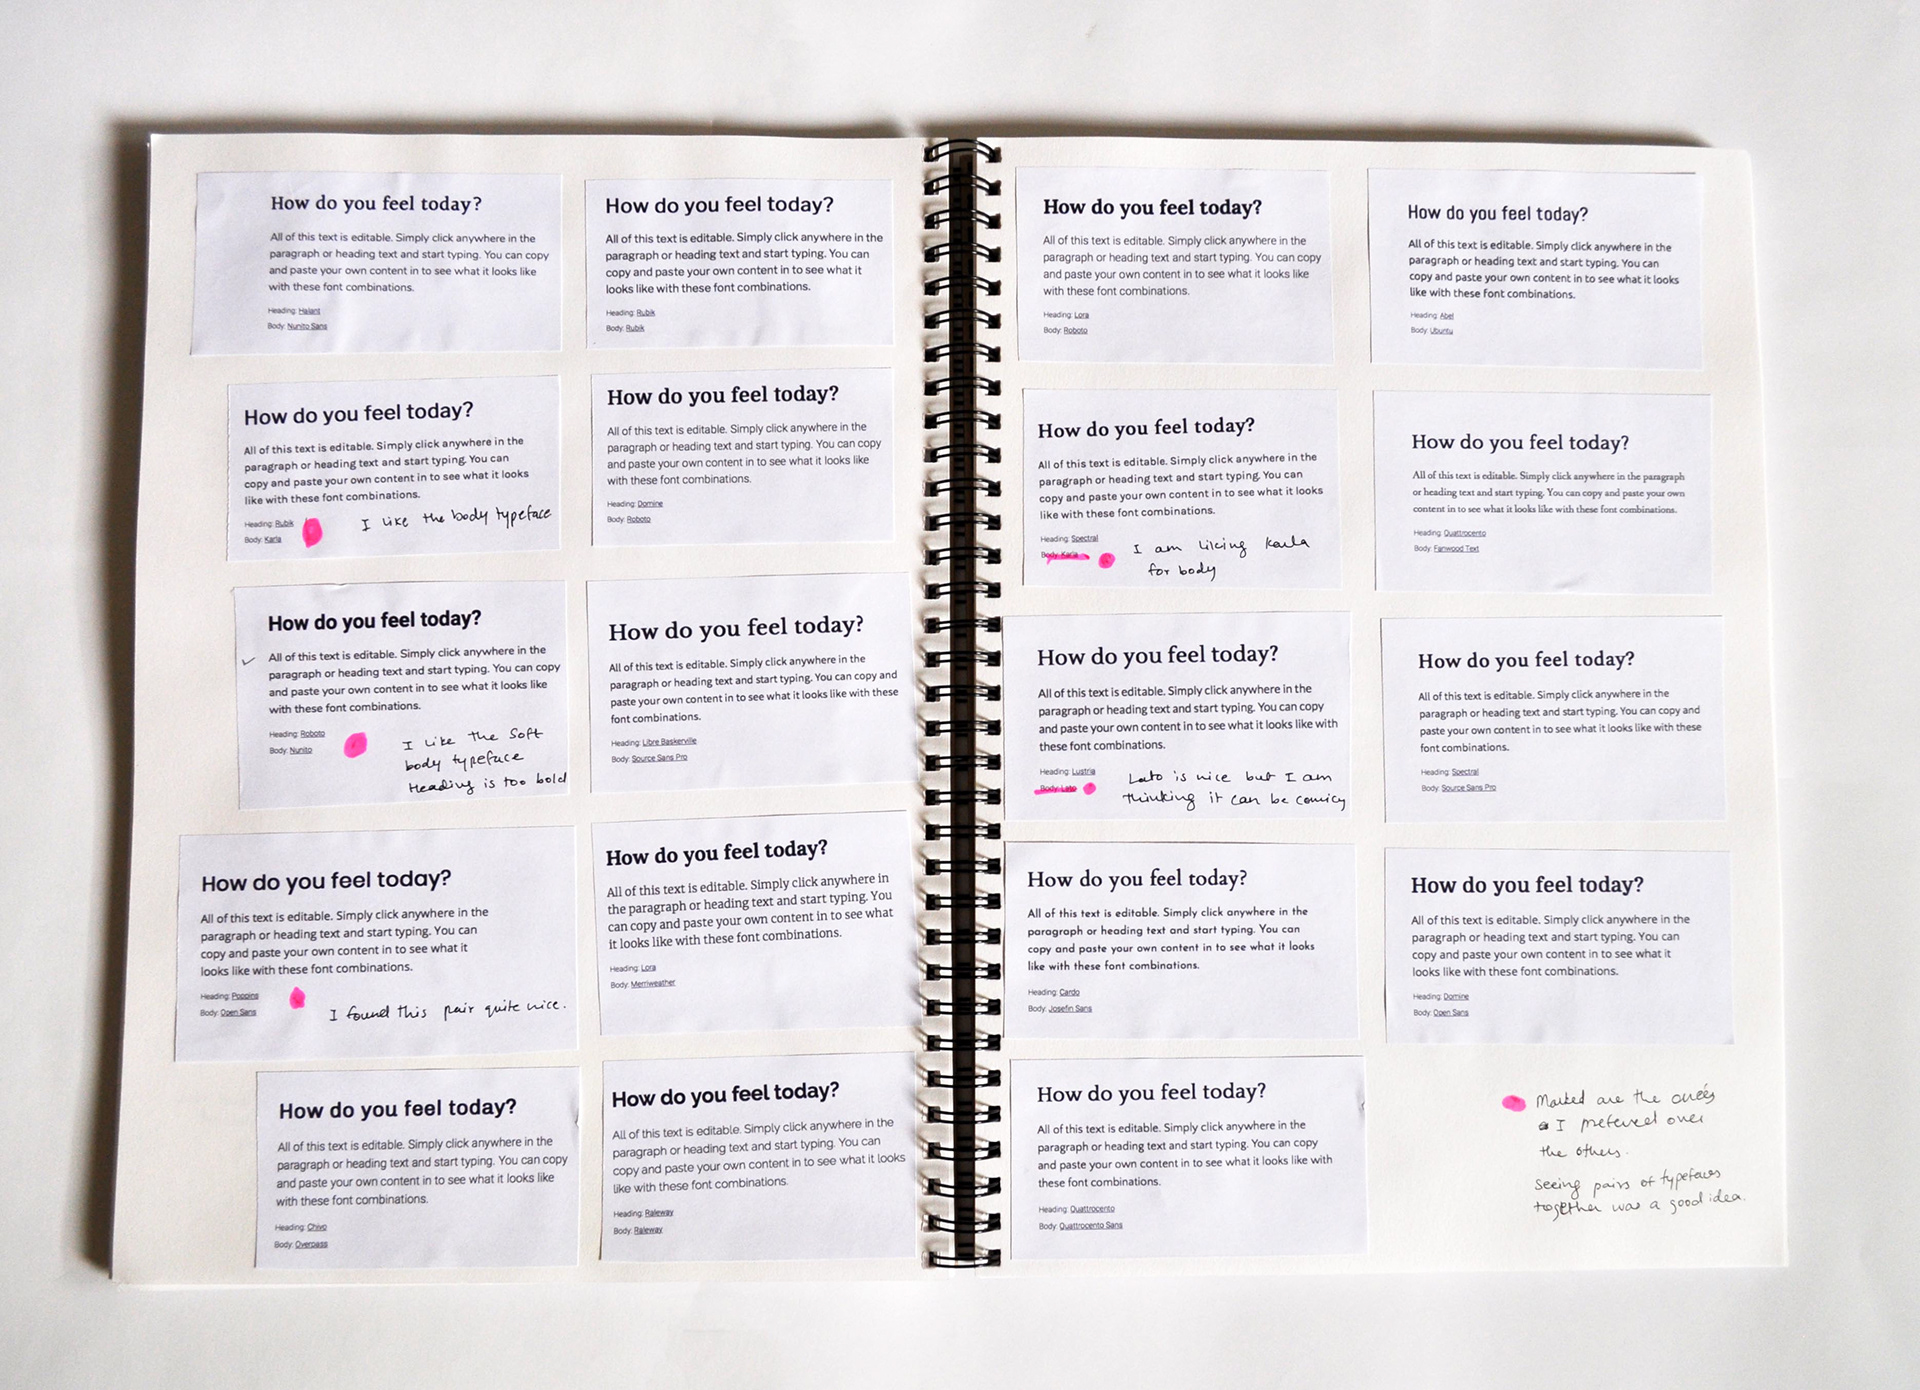 How do you feel today?
All of this text is editable. Simply click anywhere in the
paragraph or heading text and start typing. You can copy
and paste your own content in to see what it looks like
with these font combinations.
Heading: Halant
Body: Nunito Sans
How do you feel today?
All of this text is editable. Simply click anywhere in the
paragraph or heading text and start typing. You can
copy and paste your own content in to see what it
looks like with these font combinations.
Heading: Rubik
Body: Rubik
How do you feel today?
All of this text is editable. Simply click anywhere in the
paragraph or heading text and start typing. You can
copy and paste your own content in to see what it looks
like with these font combinations.
Heading: Rubik
Body: Karla
I like the body typeface
How do you feel today?
All of this text is editable. Simply click anywhere in the
paragraph or heading text and start typing. You can copy
and paste your own content in to see what it looks like
with these font combinations.
Heading: Domine
Body: Roboto
How do you feel today?
All of this text is editable. Simply click anywhere in the
paragraph or heading text and start typing. You can copy
and paste your own content in to see what it looks like
with these font combinations.
Heading: Roboto
Body: Nunito
I like the soft
body typeface
Heading is too bold
How do you feel today?
All of this text is editable. Simply click anywhere in the
paragraph or heading text and start typing. You can copy and
paste your own content in to see what it looks like with these
font combinations.
Heading: Libre Baskerville
Body: Source Sans Pro
How do you feel today?
All of this text is editable. Simply click anywhere in the
paragraph or heading text and start typing. You can
copy and paste your own content in to see what it
looks like with these font combinations.
Heading: Poppins
Body: Open Sans
I found this pair quite nice.
How do you feel today?
All of this text is editable. Simply click anywhere in
the paragraph or heading text and start typing. You
can copy and paste your own content in to see what
it looks like with these font combinations.
Heading: Lora
Body: Merriweather
How do you feel today?
All of this text is editable. Simply click anywhere in the
paragraph or heading text and start typing. You can copy
and paste your own content in to see what it looks like
with these font combinations.
Heading: Chivo
Body: Overpass
How do you feel today?
All of this text is editable. Simply click anywhere in the
paragraph or heading text and start typing. You can
copy and paste your own content in to see what it looks
like with these font combinations.
Heading: Raleway
Body: Raleway
How do you feel today?
All of this text is editable. Simply click anywhere in the
paragraph or heading text and start typing. You can copy
and paste your own content in to see what it looks like
with these font combinations.
Heading: Lora
Body: Roboto
How do you feel today?
All of this text is editable. Simply click anywhere in the
paragraph or heading text and start typing. You can
copy and paste your own content in to see what it looks
like with these font combinations.
Heading: Abel
Body: Ubuntu
How do you feel today?
All of this text is editable. Simply click anywhere in the
paragraph or heading text and start typing. You can
copy and paste your own content in to see what it looks
like with these font combinations.
Heading: Spectral
Body: Karla
I am liking Karla
for body
How do you feel today?
All of this text is editable. Simply click anywhere in the paragraph
or heading text and start typing. You can copy and paste your own
content in to see what it looks like with these font combinations.
Heading: Quattrocento
Body: Fanwood Text
How do you feel today?
All of this text is editable. Simply click anywhere in the
paragraph or heading text and start typing. You can copy
and paste your own content in to see what it looks like with
these font combinations.
Heading: Lustria
Body: Lato
Lato is nice but I am
thinking it can be comicy
How do you feel today?
All of this text is editable. Simply click anywhere in the
paragraph or heading text and start typing. You can copy and
paste your own content in to see what it looks like with these
font combinations.
Heading: Spectral
Body: Source Sans Pro
How do you feel today?
All of this text is editable. Simply click anywhere in the
paragraph or heading text and start typing. You can
copy and paste your own content in to see what it looks
like with these font combinations.
Heading: Cardo
Body: Josefin Sans
How do you feel today?
All of this text is editable. Simply click anywhere in the
paragraph or heading text and start typing. You can
copy and paste your own content in to see what it
looks like with these font combinations.
Heading: Domine
Body: Open Sans
How do you feel today?
All of this text is editable. Simply click anywhere in the
paragraph or heading text and start typing. You can copy
and paste your own content in to see what it looks like with
these font combinations.
Heading: Quattrocento
Body: Quattrocento Sans
Marked are the ones
I prefered over
the others.
Seeing pairs of typefaces
together was a good idea.